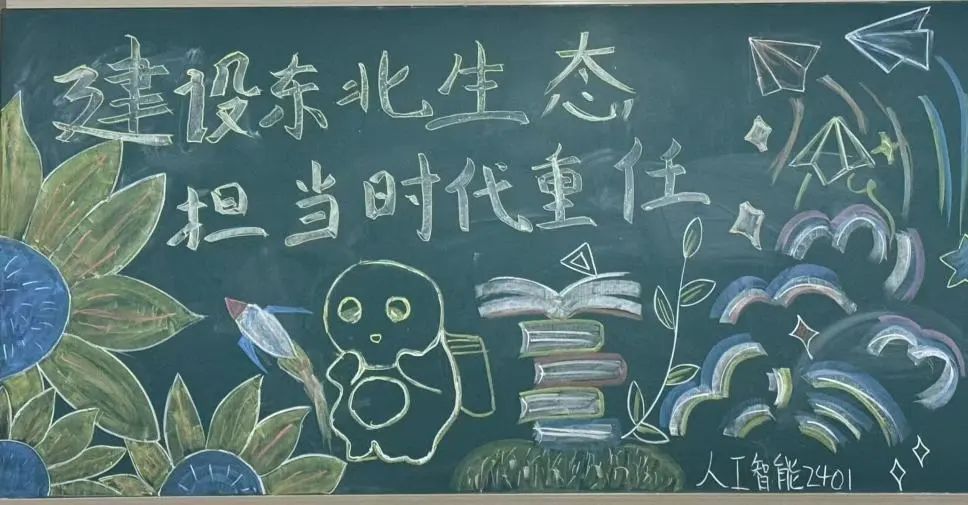 建设东北生态
担当时代重任
人工智能2401